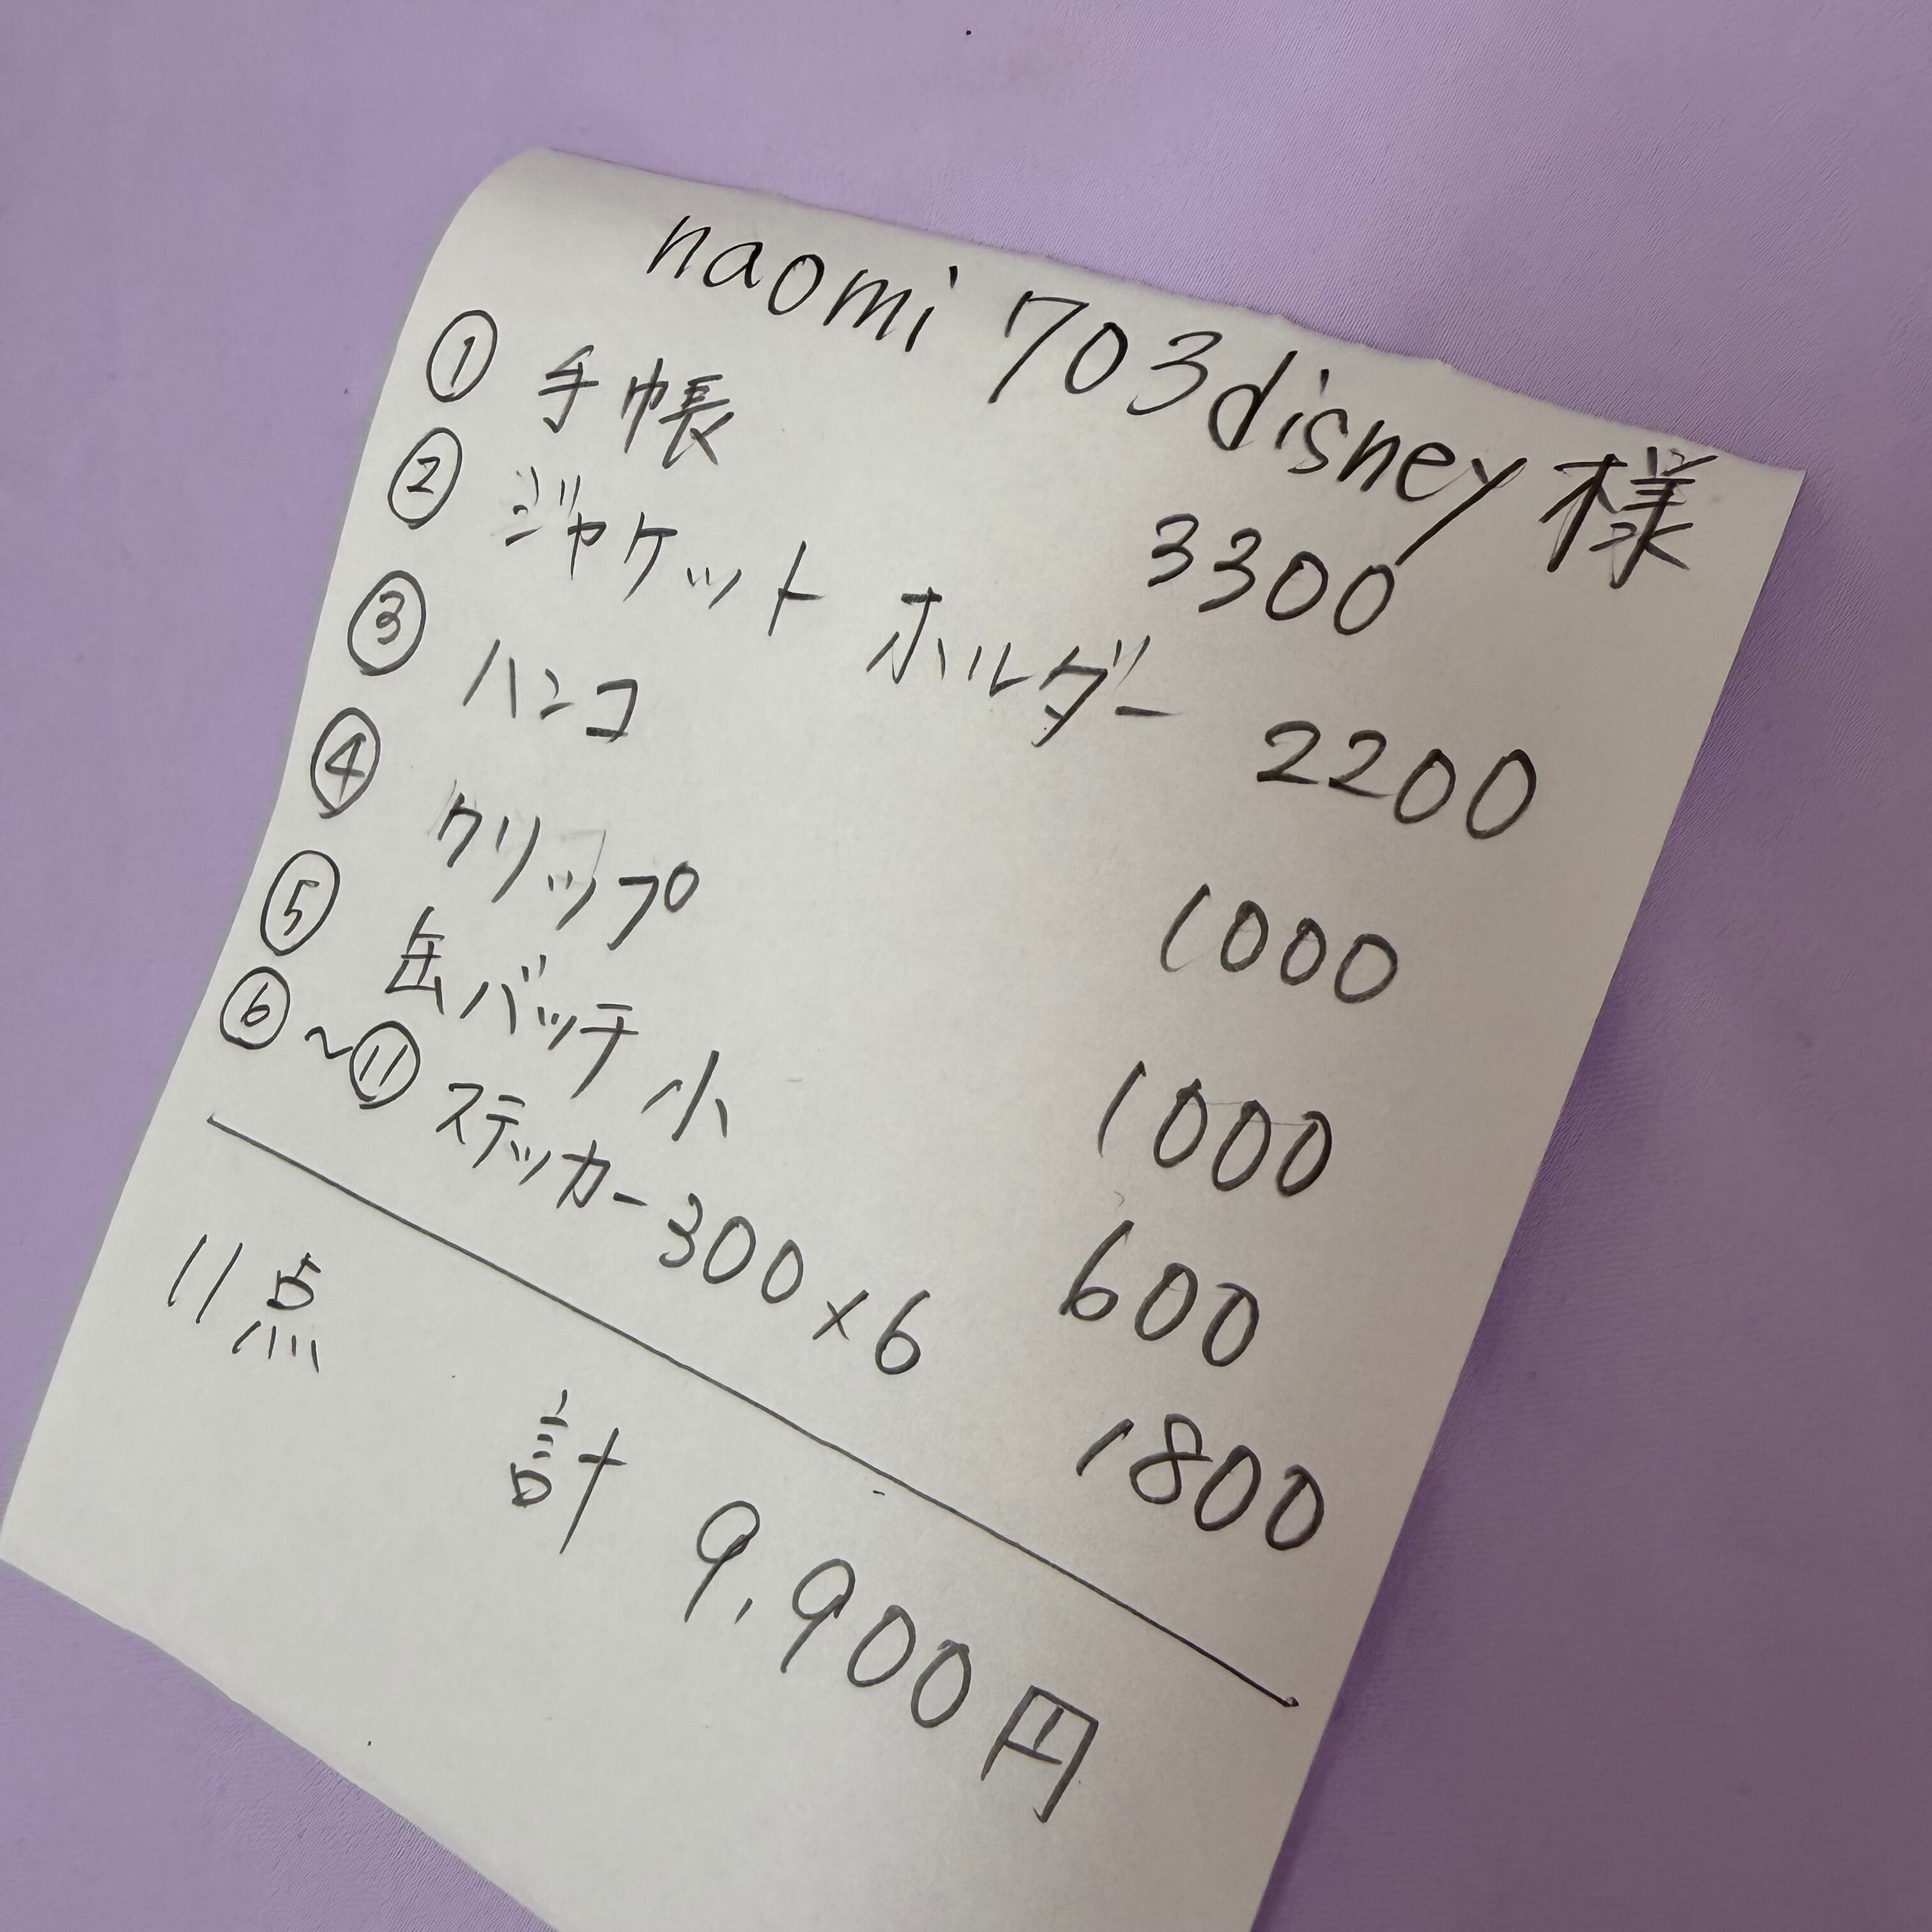 naomi 703disney 様
① 手帳 3300
② ジャケット ホルダー 2200
③ ハンコ 1000
④ クリップ 1000
⑤ 缶バッチ 小 600
⑥〜⑪ ステッカー 300×6 1800
11点 計 9,900円